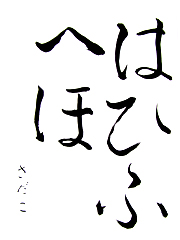 はひふ
へほ
さだこ